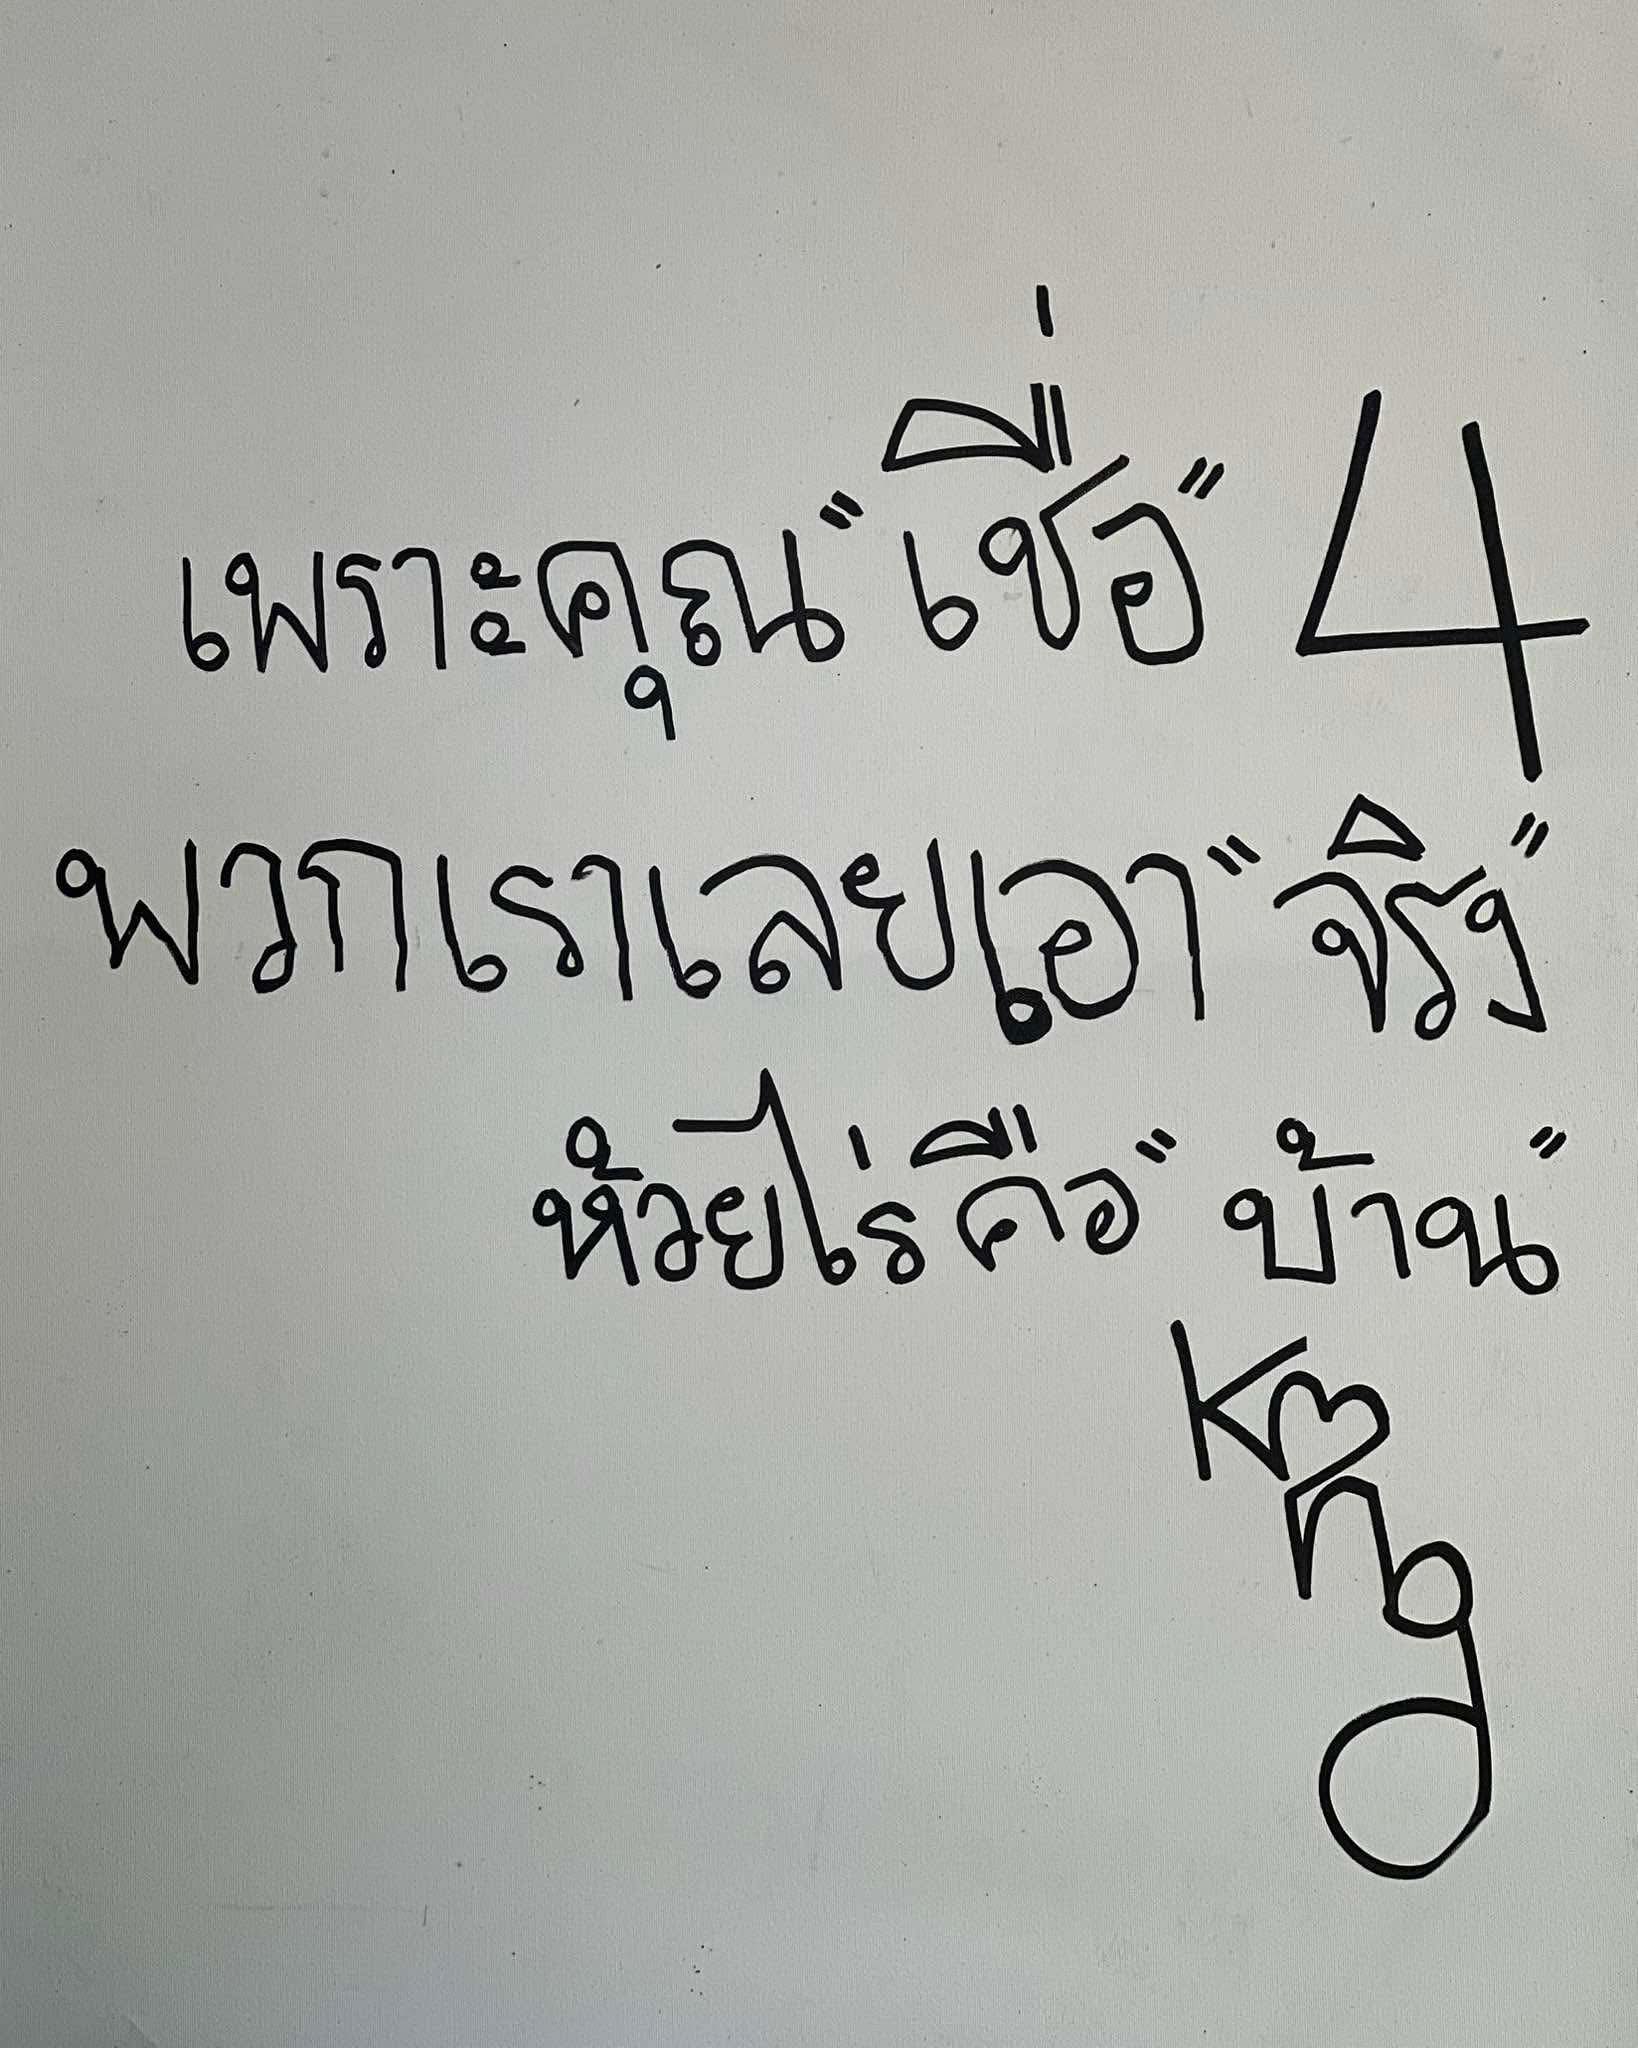 เพราะคุณ "เชื่อ" 4
พวกเราเลยเอา "จริง"
ห้วยไร่คือ "บ้าน"